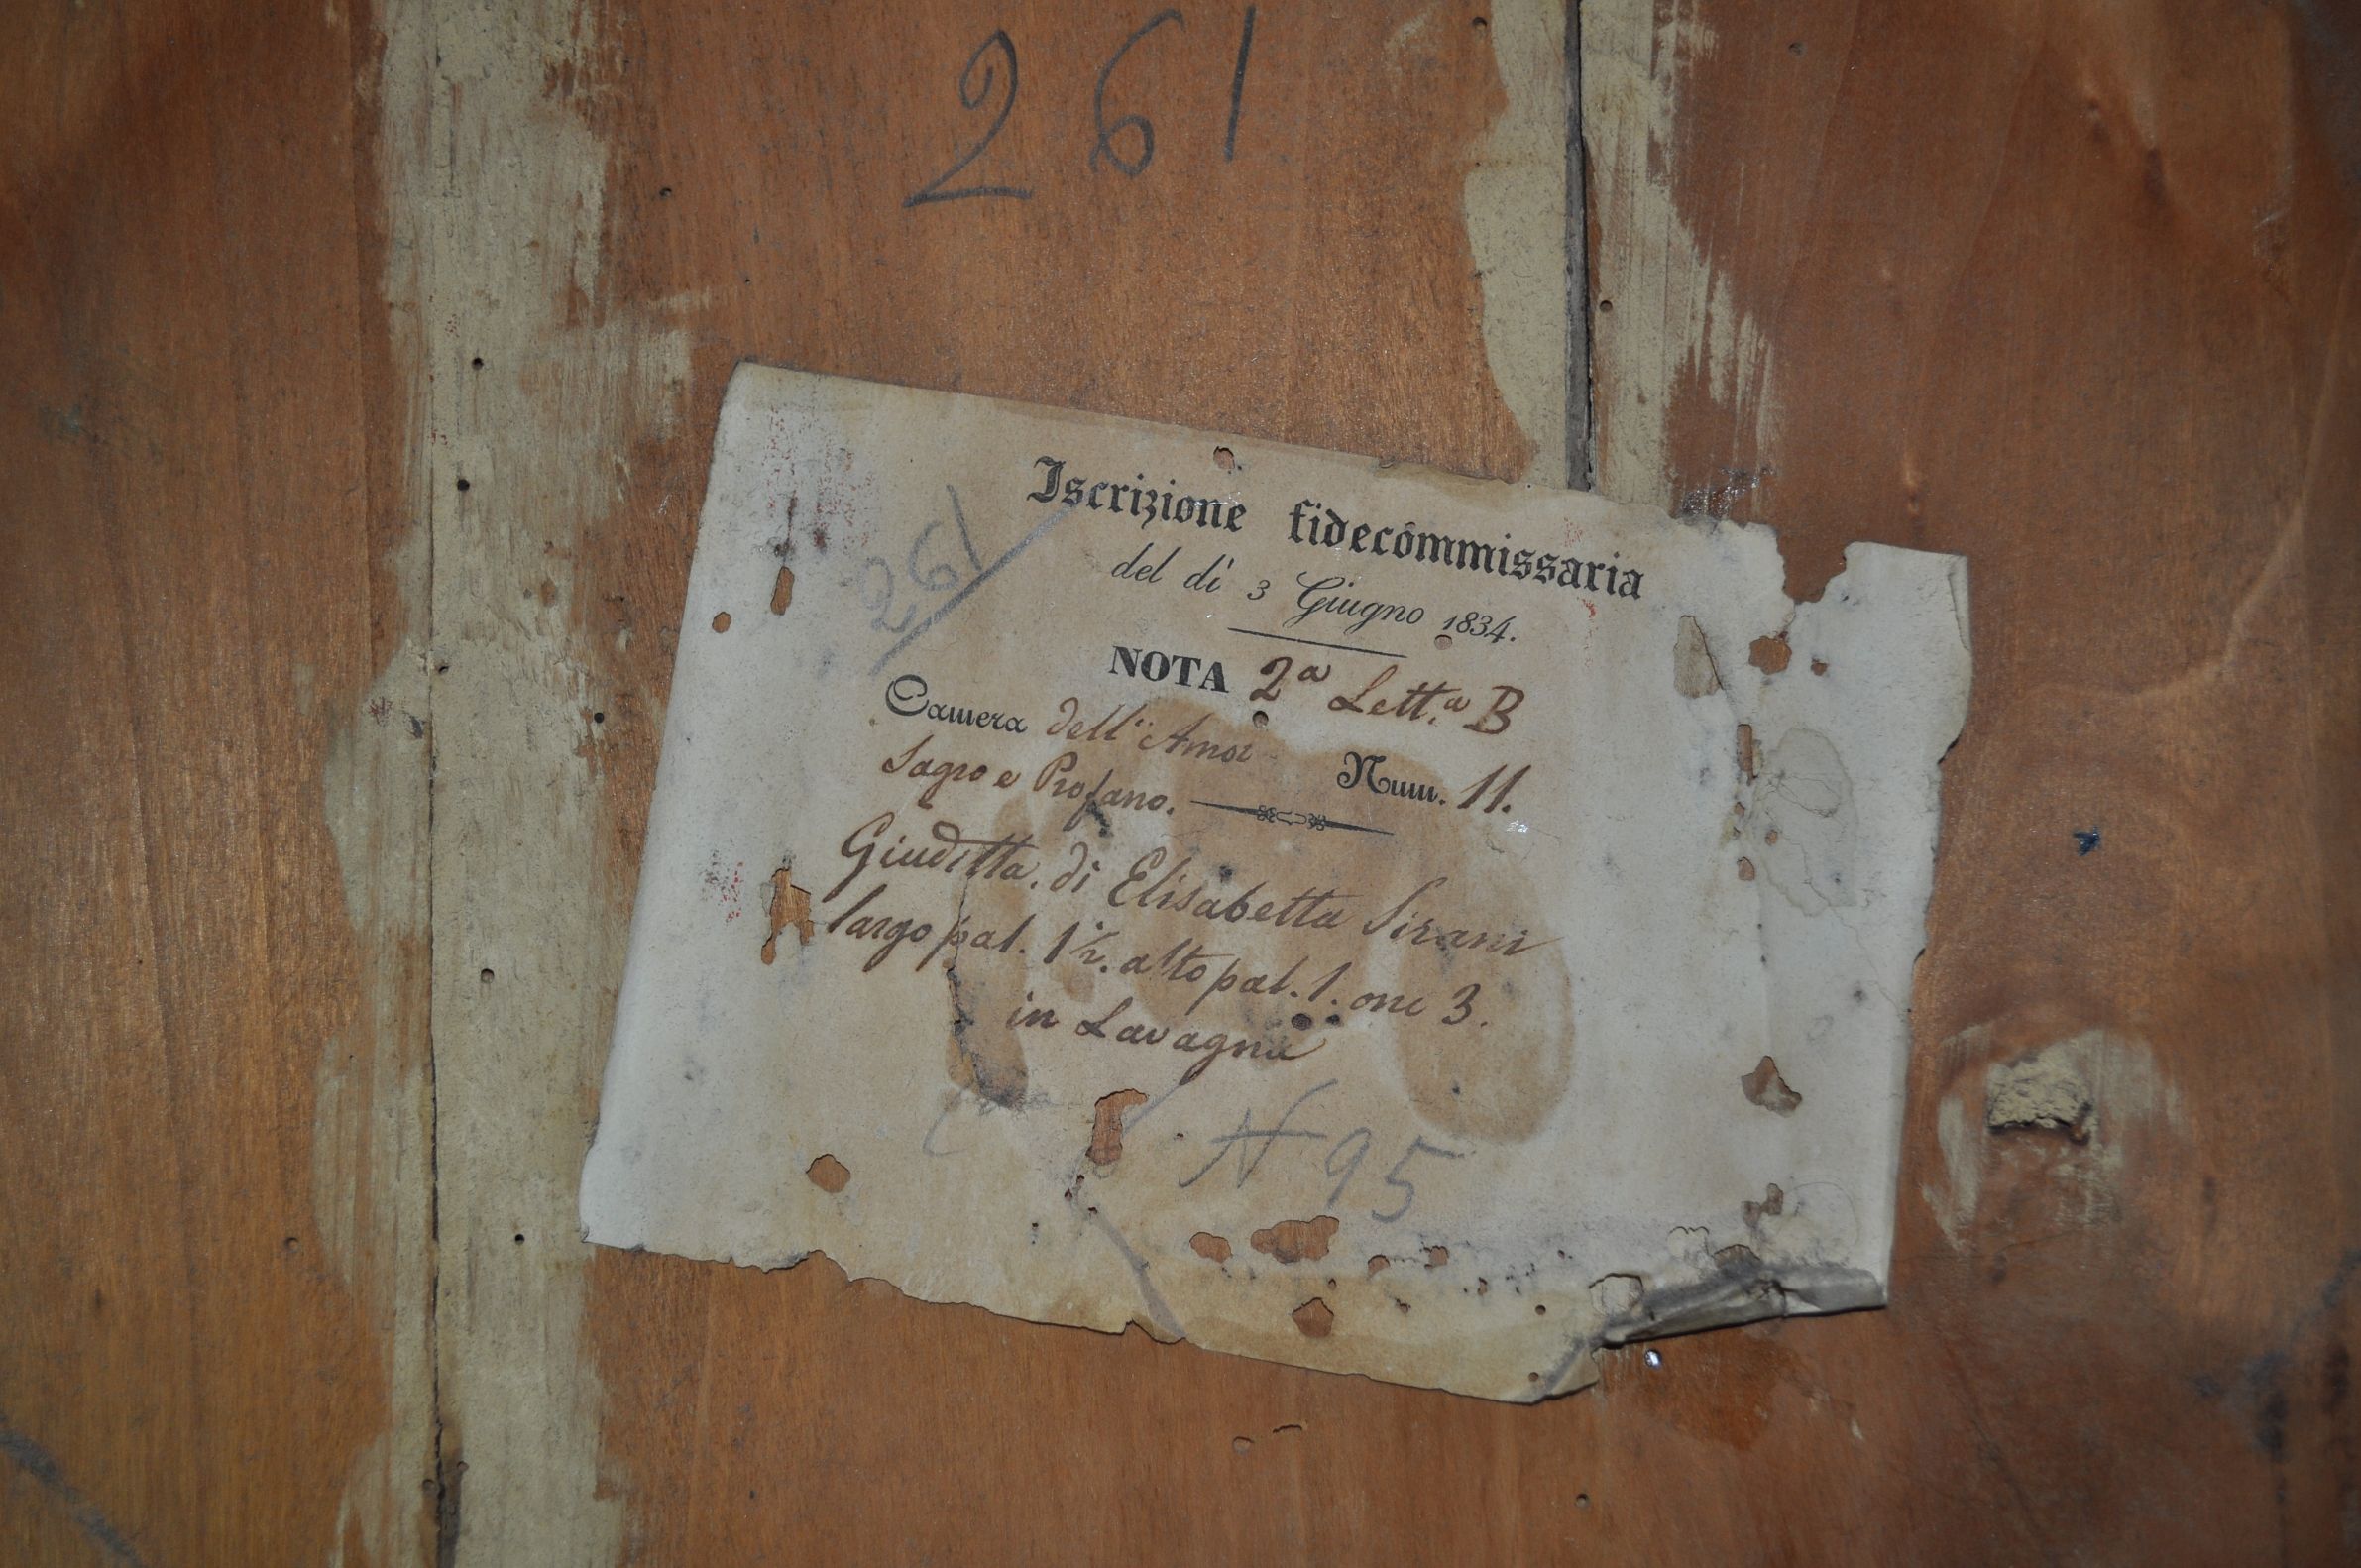 261
261
Iscrizione fidecommissaria
del dì 3 Giugno 1834.
NOTA 2ª Lett.ª B
Camera dell' Amor Num. 11.
Sagro e Profano.
Giuditta, di Elisabetta Sirani
largo pal. 1½. alto pal. 1. onc 3.
in Lavagna
N 95